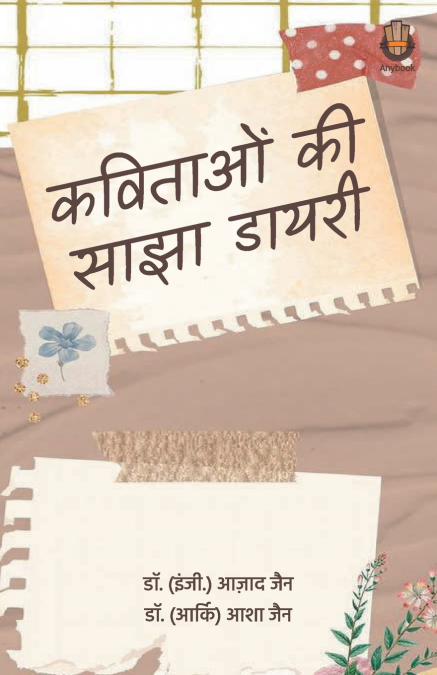 Anybook
कविताओं की
साझा डायरी
डॉ. (इंजी.) आज़ाद जैन
डॉ. (आर्कि) आशा जैन